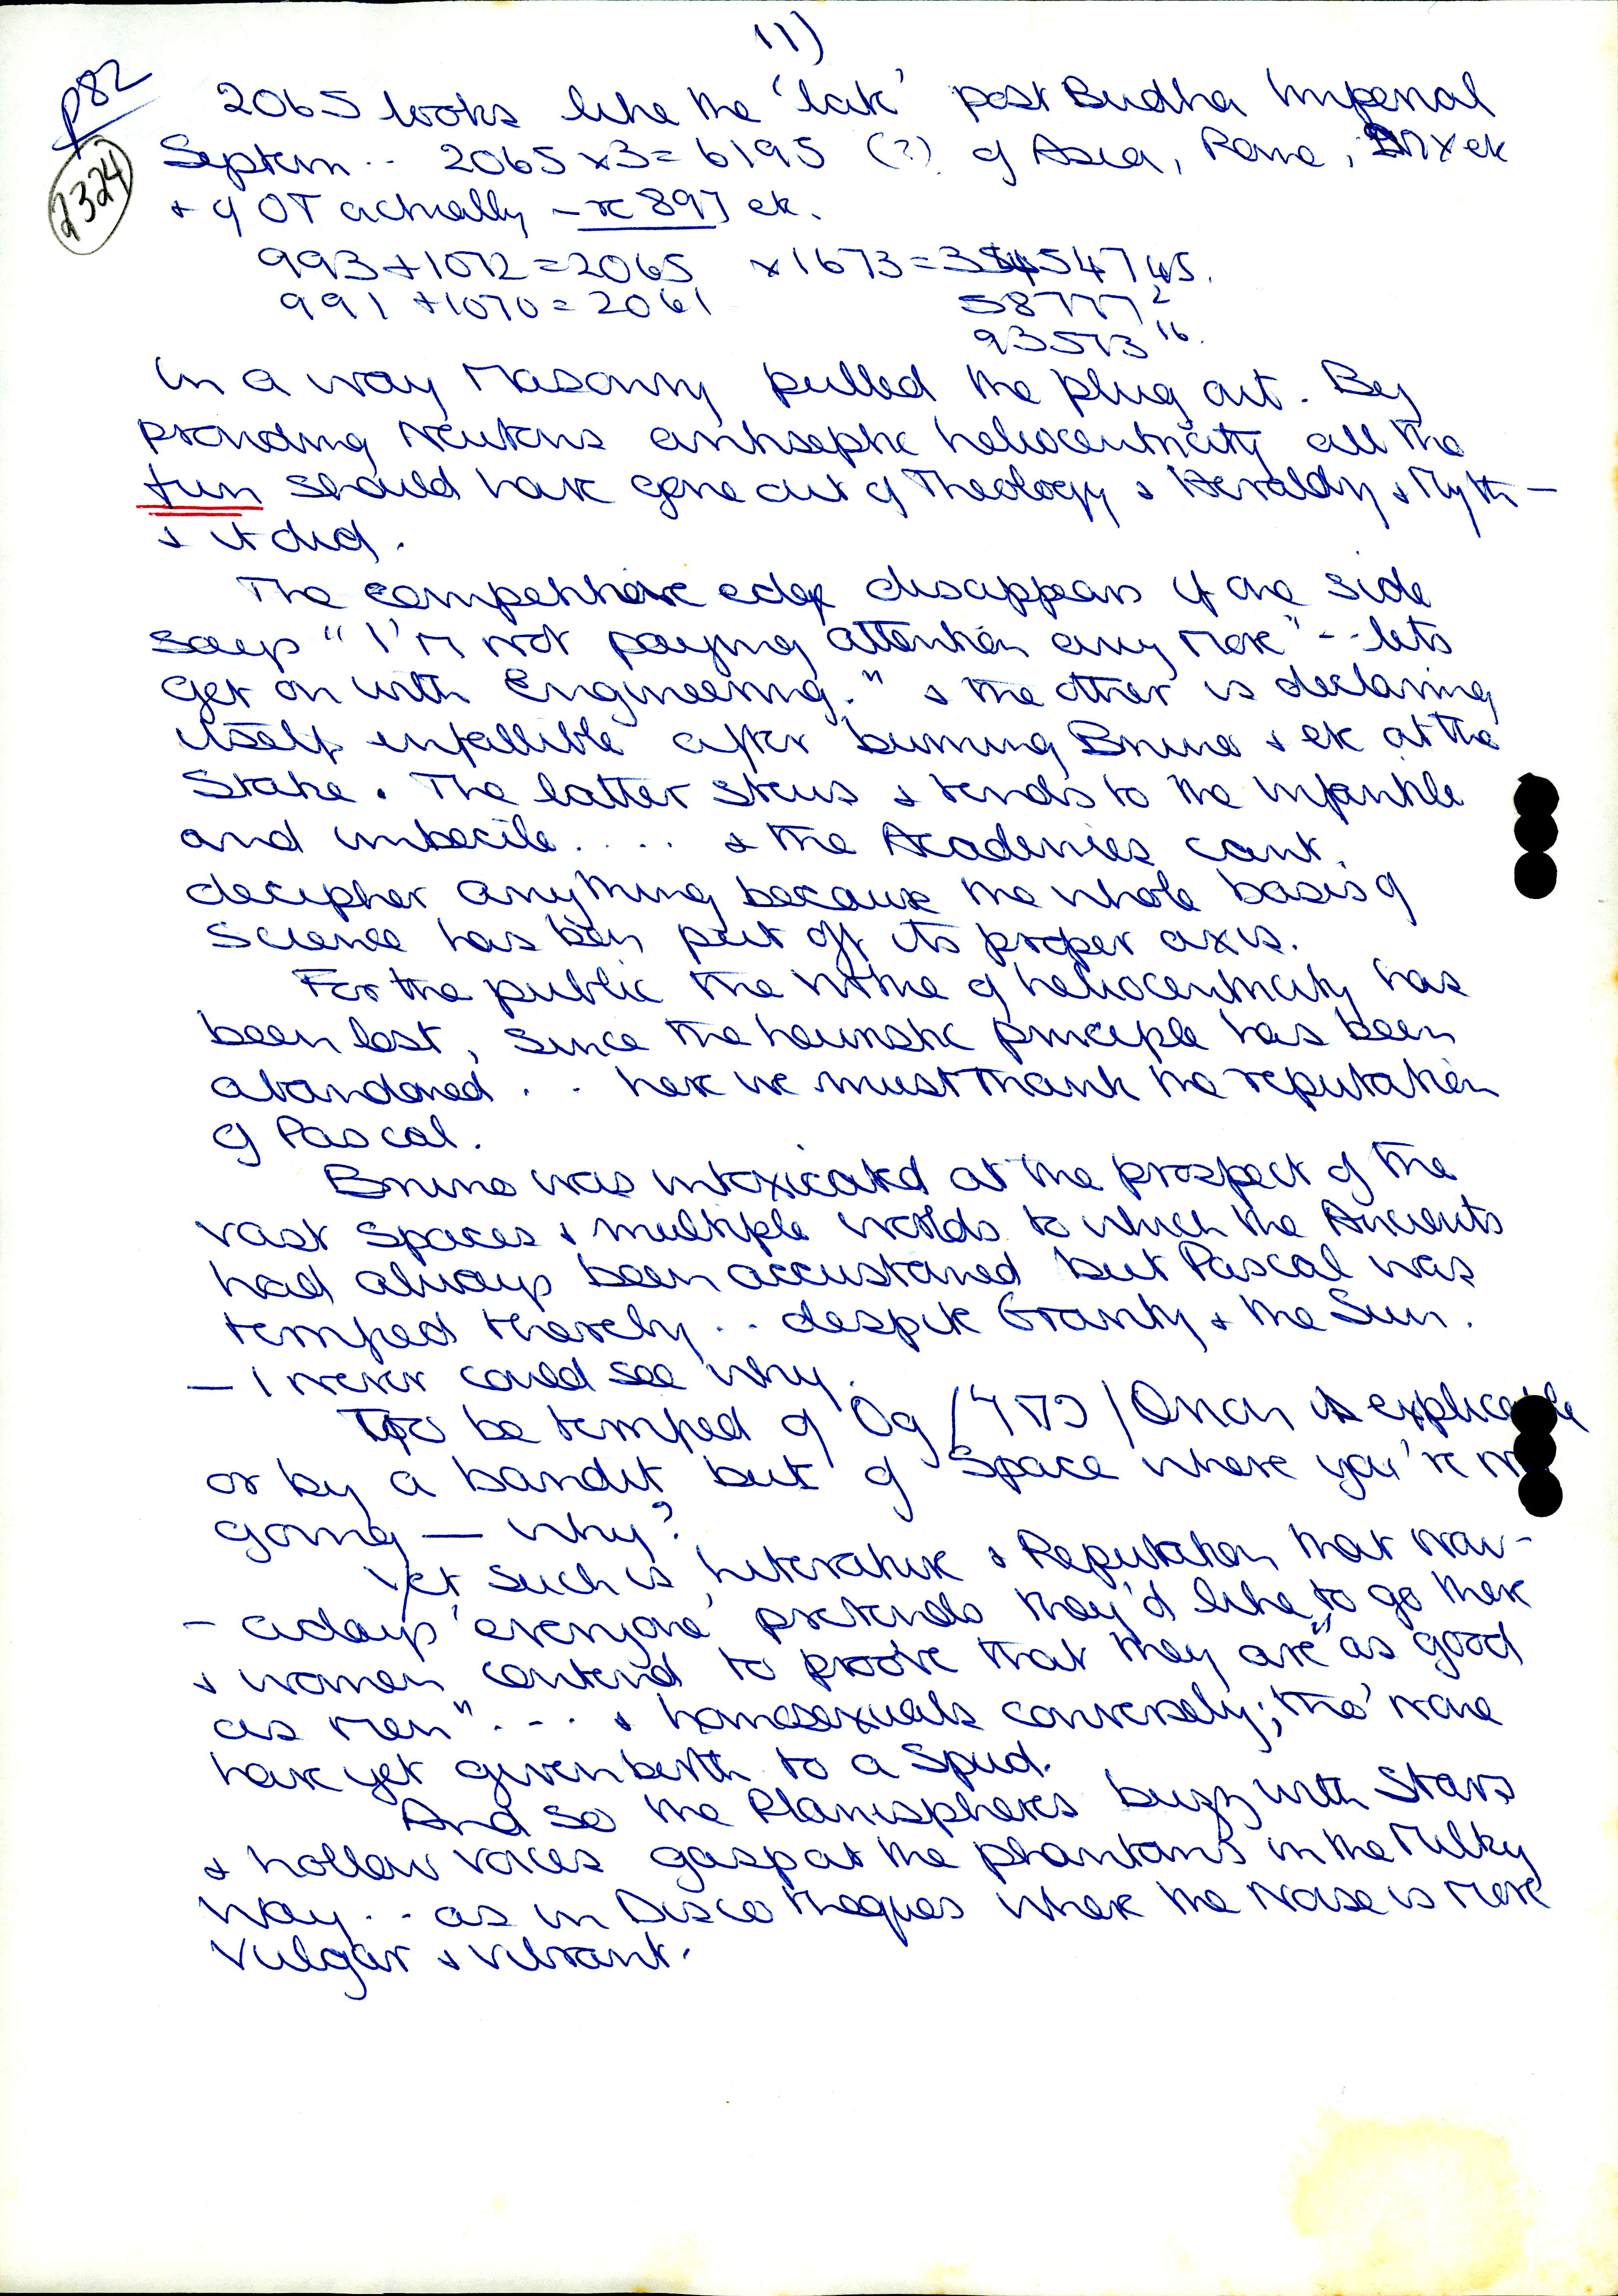 11)
p82
2324
2065 looks like the 'late' post Budha Imperial
System .. 2065 x3= 6195 (?) of Asia, Rome,
+ of OT actually - re 897 etc.
993+1072=2065 x1673=3454745.
991 +1070=2061 58777²
93573¹⁶.
In a way Masonry pulled the plug out. By
providing Newtons antiseptic heliocentricity all the
fun should have gone out of Theology & Heraldry & Myth -
& it did.
The competitive edge disappears if one side
says "I'm not paying attention any more" -- lets
get on with Engineering." & the other is declaring
itself infallible after burning Bruno & etc at the
Stake. The latter stews & tends to the infantile
and imbecile.... & the Academies cant.
decipher anything because the whole basis of
Science has been put off its proper axis.
For the public the virtue of heliocentricity has
been lost, since the heuristic principle has been
abandoned .. here we must thank the reputation
of Pascal.
Bruno was intoxicated at the prospect of the
vast spaces & multiple worlds to which the Ancients
had always been accustomed but Pascal was
terrified thereby .. despite Gravity & the Sun.
— I never could see why.
To be terrified of Og / / is explicable
or by a bandit but of Space where you're not
going — why?
Yet such is Literature & Reputation that now-
- adays 'everyone' pretends they'd like to go there
& women contend to proove that they are "as good
as men" .... & homosexuals conversely; tho' none
have yet given birth to a Spud.
And so the Planispheres buzz with Stars
& hollow voices gasp at the phantoms in the Milky
Way .. as in Disco theques where the Noise is More
Vulgar & vibrant.